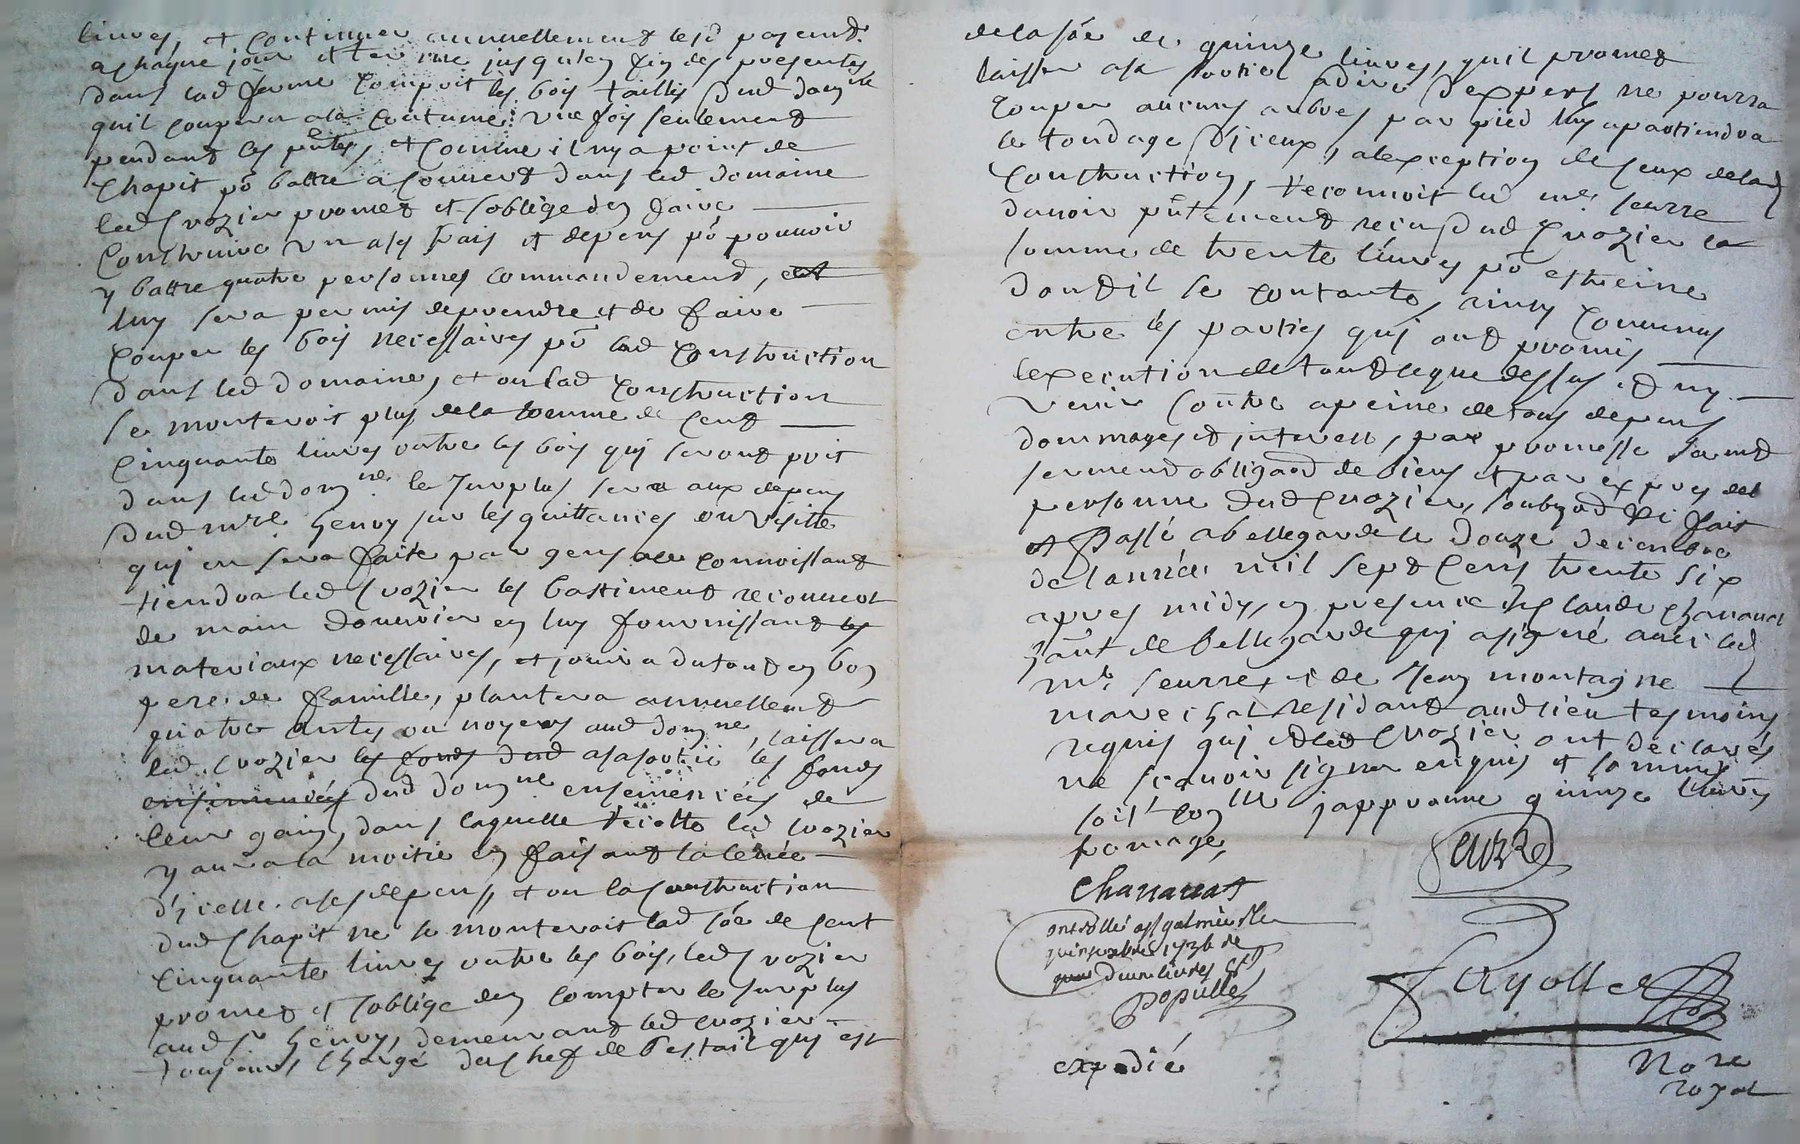 livres, et continuer annuellement lesd payemt
a chaque jour et terme jusqu'en fin des presentes
dans lad ferme compris les bois taillis dud domne
quil coupera a la coutume une fois seulement
pendant les pntes, et comme il ny a point de
chapit po battre a couvert dans led domaine
led Crozier promet et soblige den faire
construire un a ses frais et depens po pouvoir
y battre quatre personnes commandement,
luy sera permis de prendre et de faire
couper les bois necessaires po lad construction
dans led domaine, et ou lad construction
se monteroit plus de la somme de cent
cinquante livres outre les bois qui seront prit
dans led domne le surplus sera aux depens
dud Henry sur les quittances ou visitte
qui en sera faite par gens a ce connoissant
tiendra led Crozier les bastiment recouvert
de main douvrier en luy fournissant les
materiaux necessaires, et jouira du tout en bon
pere de famille, plantera annuellement
quatre antes ou noyers aud domne, laissera
led Crozier les fonds dud a sa sortie les fonds
ensemencés dud domne ensemencés de
leur gain, dans laquelle recolte led Crozier
y aura la moitié en faisant la levée
d'icelle a ses depens, et ou la construction
dud chapit ne se monteroit lad soe de cent
cinquante livres outre les bois, led Crozier
promet et soblige den compter le surplus
aud sr Henry, demeurant led Crozier
toujours chargé du chef de bestail qui est
de la soe de quinze livres, quil promet
laisser a sa sortie a dire d'expers ne pourra
couper aucuns arbres par pied luy apartiendra
le tondage diceux, a lexception de ceux de lad
construction, reconnoit led mr Seurre
davoir pntement receu dud Crozier la
somme de trente livres po estreine
dont il se contante, ainsy convenus
entre les parties qui ont promis
lexecution de tout ce que dessus et ny
venir contre a peine de tous depens
dommages et interests, par promesse sermt
serment obligaon de biens et par expres de
personne dud Crozier, soubz fait
et passé a bellegarde le douze decembre
de lannée mil sept cens trente six
apres midy, en presence de Claude Chanavat
hant de bellegarde qui a signé avec led
mr Seurre, et de Jean montagne
marechal residant aud lieu tesmoins
requis qui et led Crozier ont déclarés
ne scavoir signer enquis et sommés
japprouve quinze livres
fromage,
Seurre
Chanavat
ontrollé a St galmier le
quinze xbre 1736 re
deux livres
Populle
Fayolle
expedié
Nore
royal